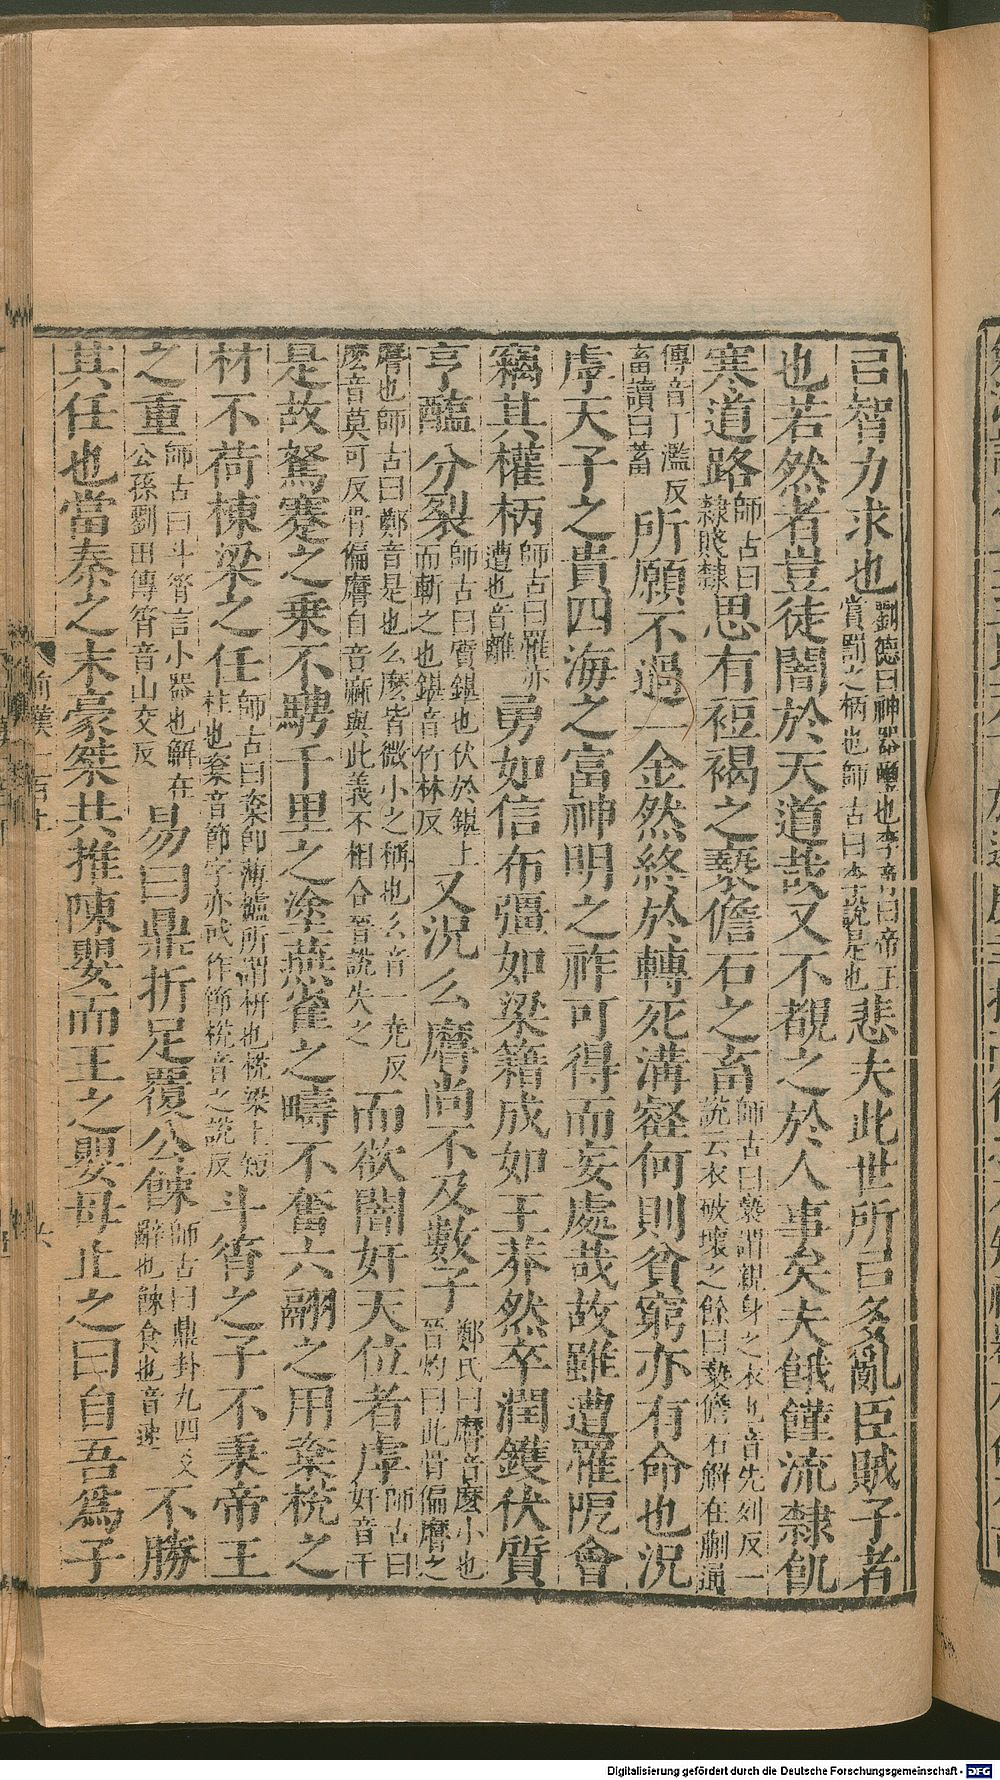 㠯智力求也劉德曰神器璽也李奇曰帝王賞罰之柄也師古曰李說是也悲夫此世所㠯多亂臣賊子者
也若然者豈徒闇於天道哉又不覩之於人事矣夫餓饉流隸飢
寒道路師古曰隸賤隸思有裋褐之褻儋石之畜師古曰褻謂親身之衣也音先列反一說云衣破壞之餘曰褻儋石解在蒯通
傳音丁濫反畜讀曰蓄所願不過一金然終於轉死溝壑何則貧窮亦有命也況
虖天子之貴四海之富神明之祚可得而妄處哉故雖遭罹阨會
竊其權柄師古曰罹亦遭也音離勇如信布彊如梁籍成如王莽然卒潤鑊伏質
亨醢分裂師古曰質鍖也伏於鍖上而斬之也鍖音竹林反又況么麿尚不及數子鄭氏曰麿音麽小也晉灼曰此骨偏麿之
麿也師古曰鄭音是也么麽皆微小之稱也么音一堯反麽音莫可反骨偏麿自音麻與此義不相合晉說失之而欲闇奸天位者虖師古曰奸音干
是故駑蹇之乗不騁千里之塗燕雀之疇不奮六翮之用楶梲之
材不荷棟梁之任師古曰楶即薄櫨所謂枅也梲梁上短柱也楶音節字亦或作節梲音之說反斗筲之子不秉帝王
之重師古曰斗筲言小器也解在公孫劉田傳筲音山交反易曰鼎折足覆公餗師古曰鼎卦九四爻辭也餗食也音速不勝
其任也當秦之末豪桀共推陳嬰而王之嬰母止之曰自吾爲子
Digitalisierung gefördert durch die Deutsche Forschungsgemeinschaft - DFG